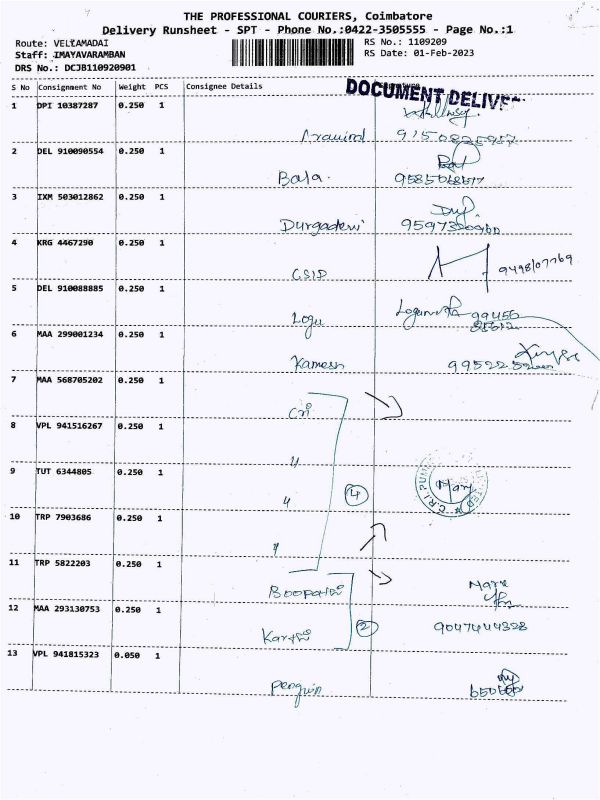 THE PROFESSIONAL COURIERS, Coimbatore
Delivery Runsheet - SPT - Phone No.:0422-3505555 - Page No.:1
Route: VELLAMADAI
RS No.: 1109209
Staff: IMAYAVARAMBAN
RS Date: 01-Feb-2023
DRS No.: DCJB110920901
S No Consignment No Weight PCS Consignee Details
DOCUMENT DELIVE
1 DPI 10387287 0.250 1
Aravind 9150825957
2 DEL 910090554 0.250 1
Bala. 9585068517
3 IXM 503012862 0.250 1
Durgadevi
4 KRG 4467290 0.250 1
CSID 9498107769
5 DEL 910088885 0.250 1
Logu 99456
6 MAA 299001234 0.250 1
Kamesh
7 MAA 568705202 0.250 1
Cri
8 VPL 941516267 0.250 1
"
9 TUT 6344805 0.250 1
" 4
C.R.I. PUM
10 TRP 7903686 0.250 1
"
11 TRP 5822203 0.250 1
Boopathi
12 MAA 293130753 0.250 1
2 9047444328
13 VPL 941815323 0.050 1
Penguin